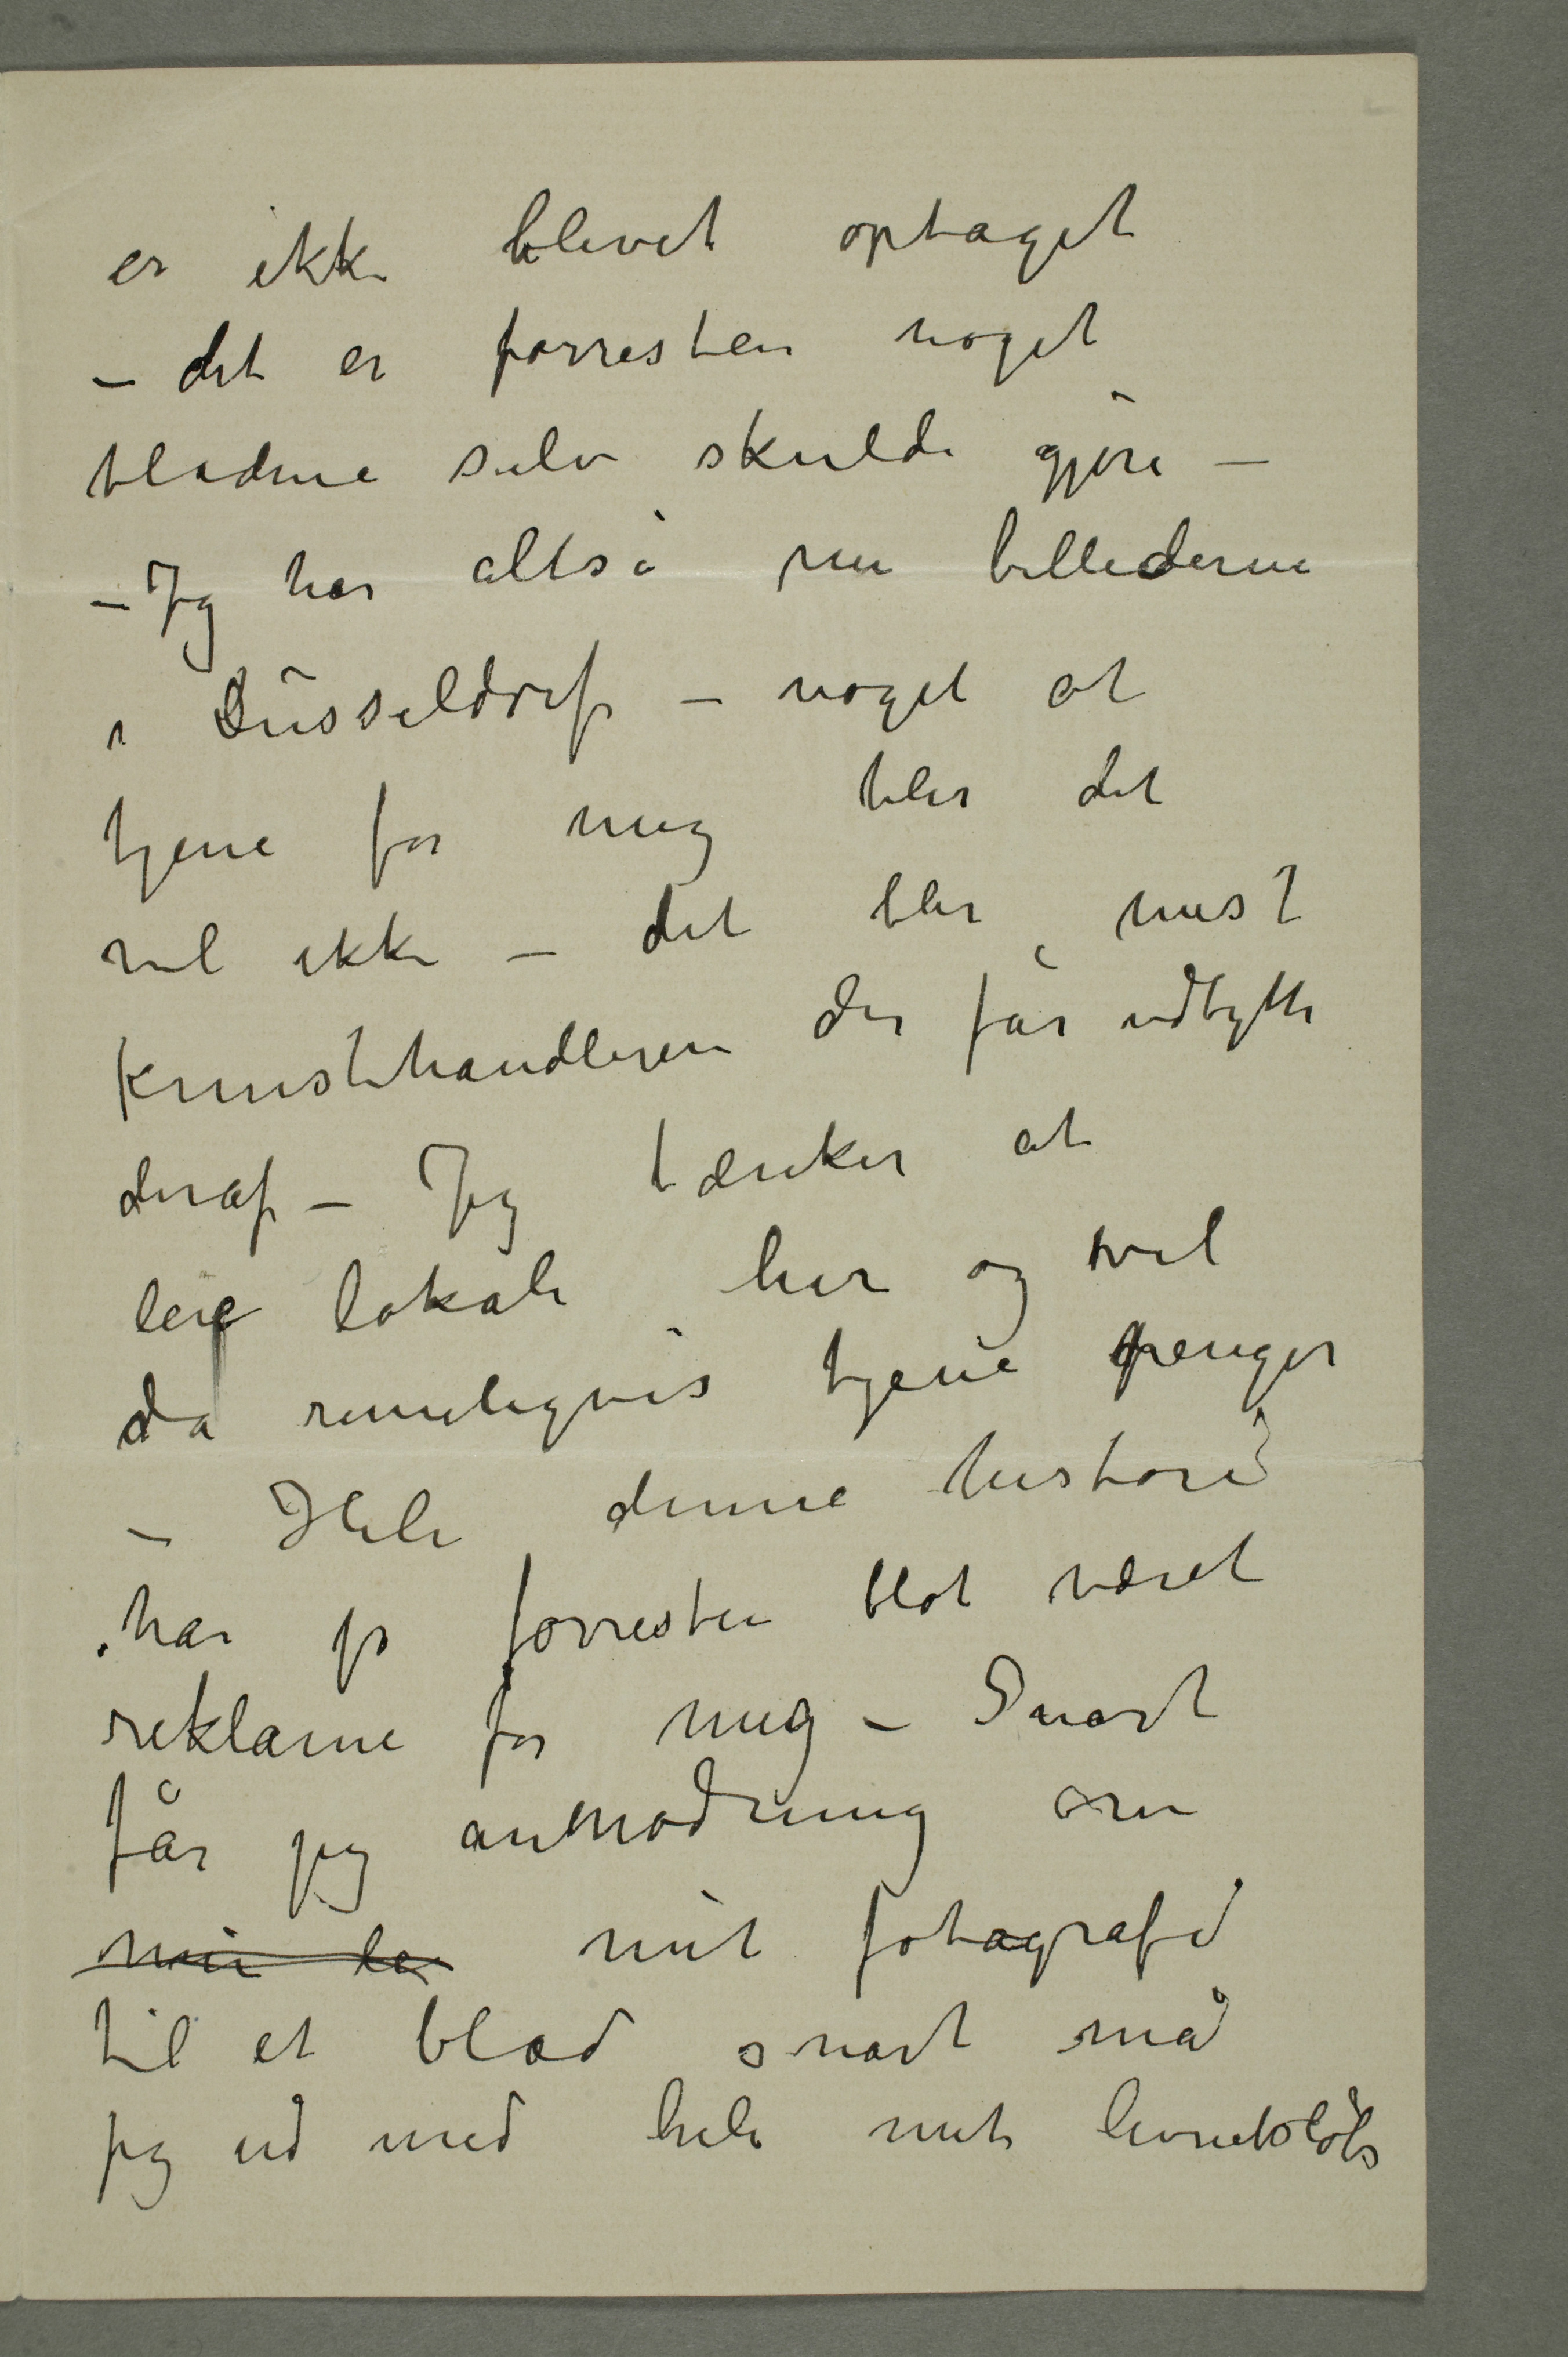 er ikke blevet optaget
– det er forresten noget
bladene selv skulde gjøre –
– Jeg har altså nu billederne
i Düsseldorf – noget at
tjene for mig blir det
vel ikke – det blir mest
Kunsthandleren der får udbytte
deraf – Jeg tænker at
leie lokale her og vil
da rimeligvis tjene penger
– Hele denne historie
har jo forresten blot været
reklame for mig – Snart
får jeg anmodning om
mit fotografi
til et blad snart må
jeg ud med hele mit levnetsløbs